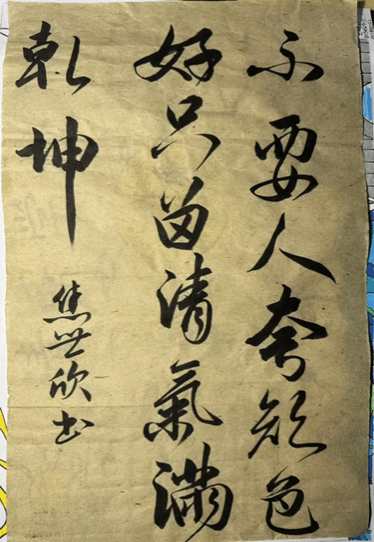 不要人夸颜色
好只留清氣满
乾坤
焦世欣书